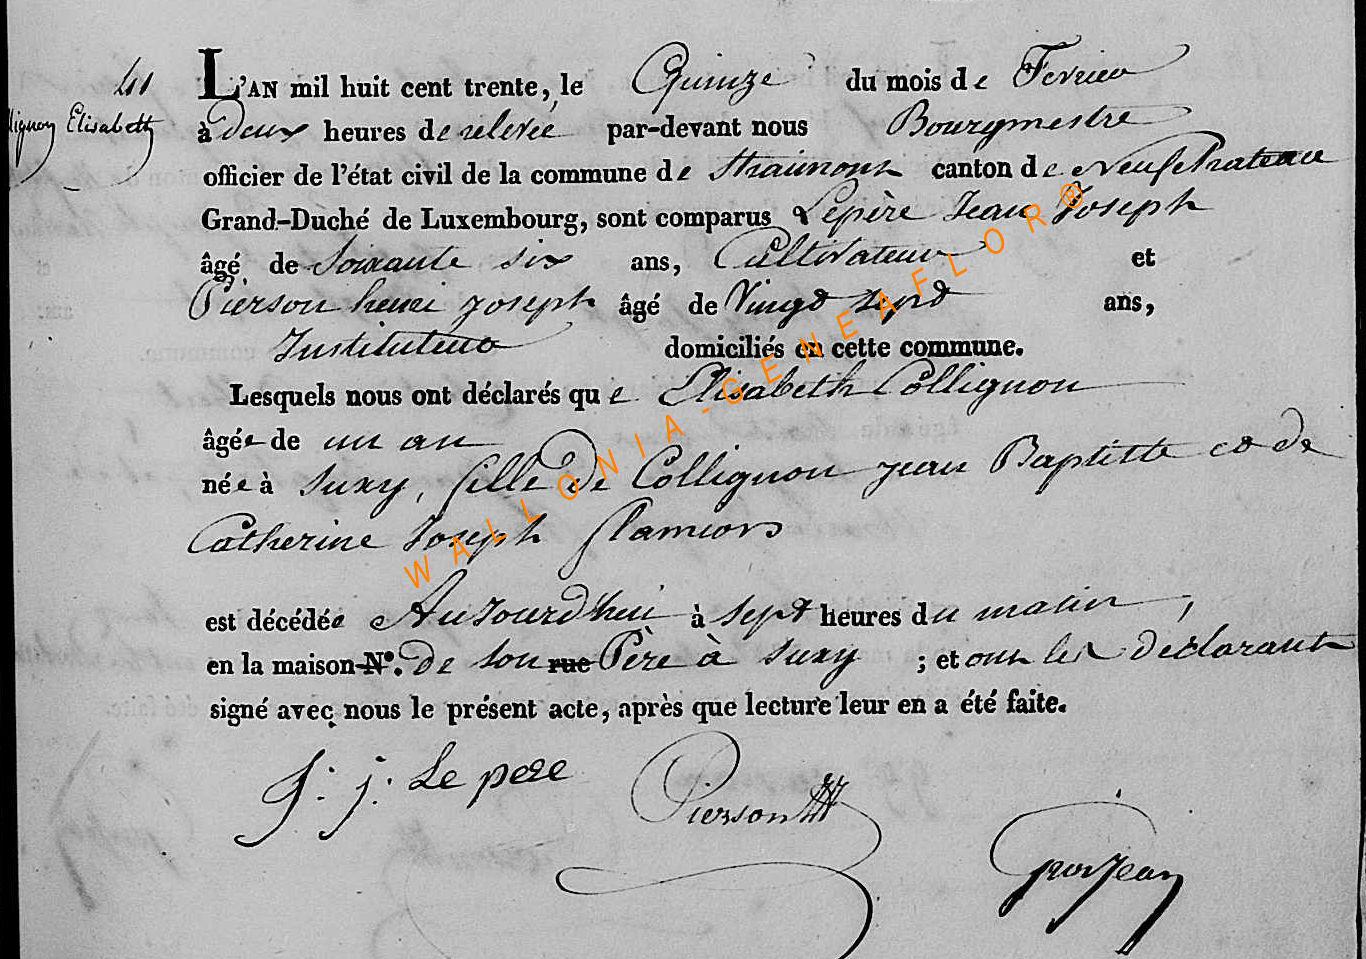 41
L'AN mil huit cent trente, le Quinze du mois de Fevrier
lignon Elisabeth
à deux heures de relevée par-devant nous Bourgmestre
officier de l'état civil de la commune de Straimont canton de Neufchateau
Grand-Duché de Luxembourg, sont comparus Lepère Jean Joseph
âgé de Soixante six ans, Cultivateur et
Pierson henri joseph âgé de Vingt sept ans,
Instituteur domiciliés en cette commune.
Lesquels nous ont déclarés que Elisabeth Collignon
âgée de un an
née à Suxy, fille de Collignon jean Baptitte et de
Catherine Joseph
est décédée Aujourd'hui à sept heures du matin,
en la maison N°. de son rue Père à Suxy ; et ont les declarant
signé avec nous le présent acte, après que lecture leur en a été faite.
J. j. Le pere
Pierson
Grosjean
WALLONIA-GENEAFLOR®